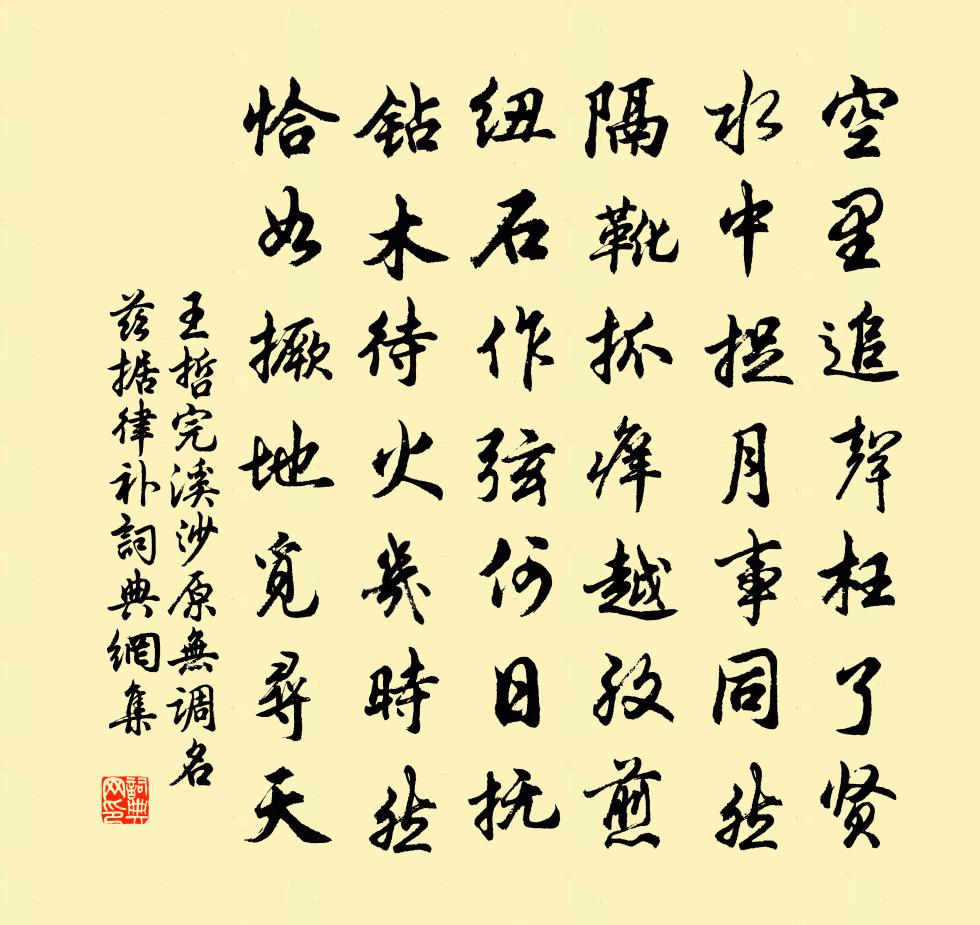 空里追聲枉了贤
水中捉月事同然
隔靴抓痒越孜煎
纽石作弦何日抚
钻木待火幾時然
恰如撅地觅寻天
王哲完溪沙原無调名
兹据律补詞典網集
詞典网印